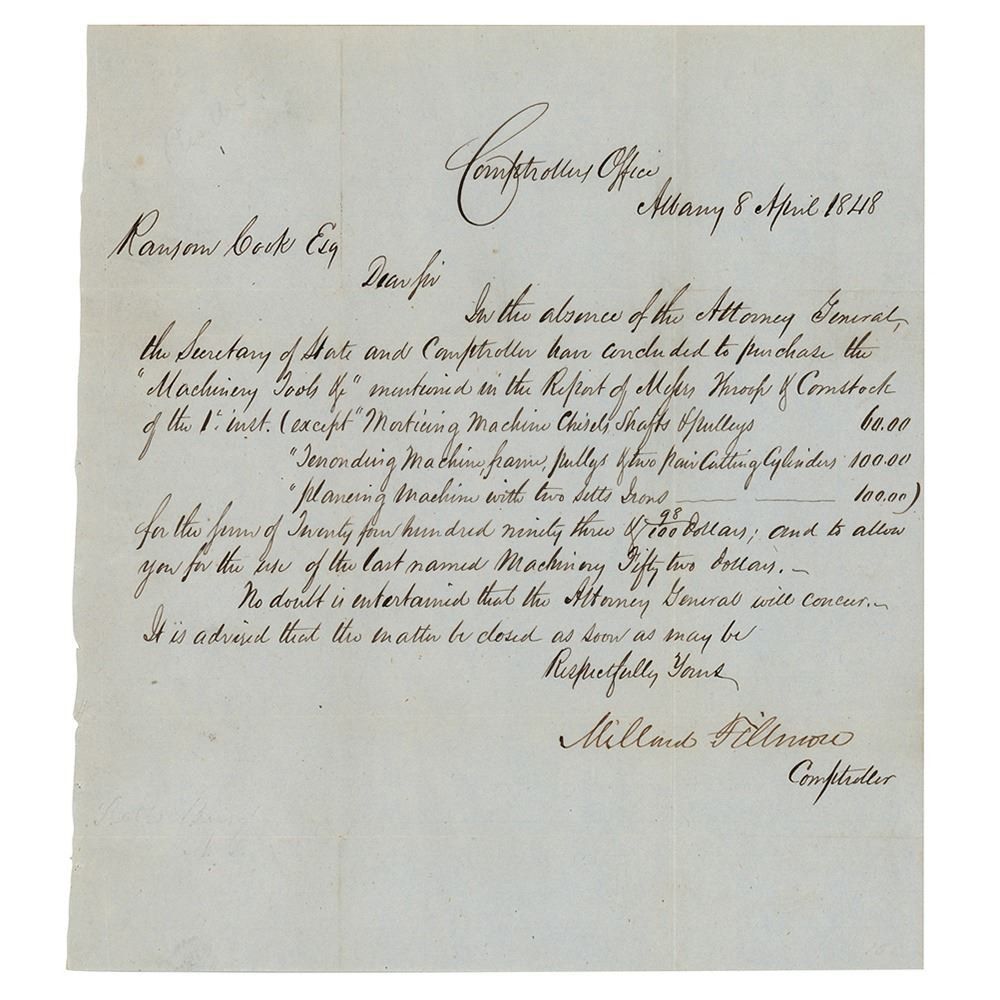 Comptrollers Office
Albany 8 April 1848
Ransom Cook Esq
Dear Sir
In the absence of the Attorney General,
the Secretary of State and Comptroller have concluded to purchase the
"Machinery Tools &c" mentioned in the Report of Messrs Throop & Comstock
of the 1st inst. (except "Morticing Machine Chisels, Shafts & pulleys 60.00
"Tenonding Machine, frame, pullys & two pair Cutting Cylinders 100.00
"planeing Machine with two setts Irons — — 100.00)
for the sum of Twenty four hundred ninety three & 98/100 Dollars; and to allow
you for the use of the last named Machinery Fifty two Dollars. —
No doubt is entertained that the Attorney General will concur. —
It is advised that the matter be closed as soon as may be
Respectfully Yours
Millard Fillmore
Comptroller